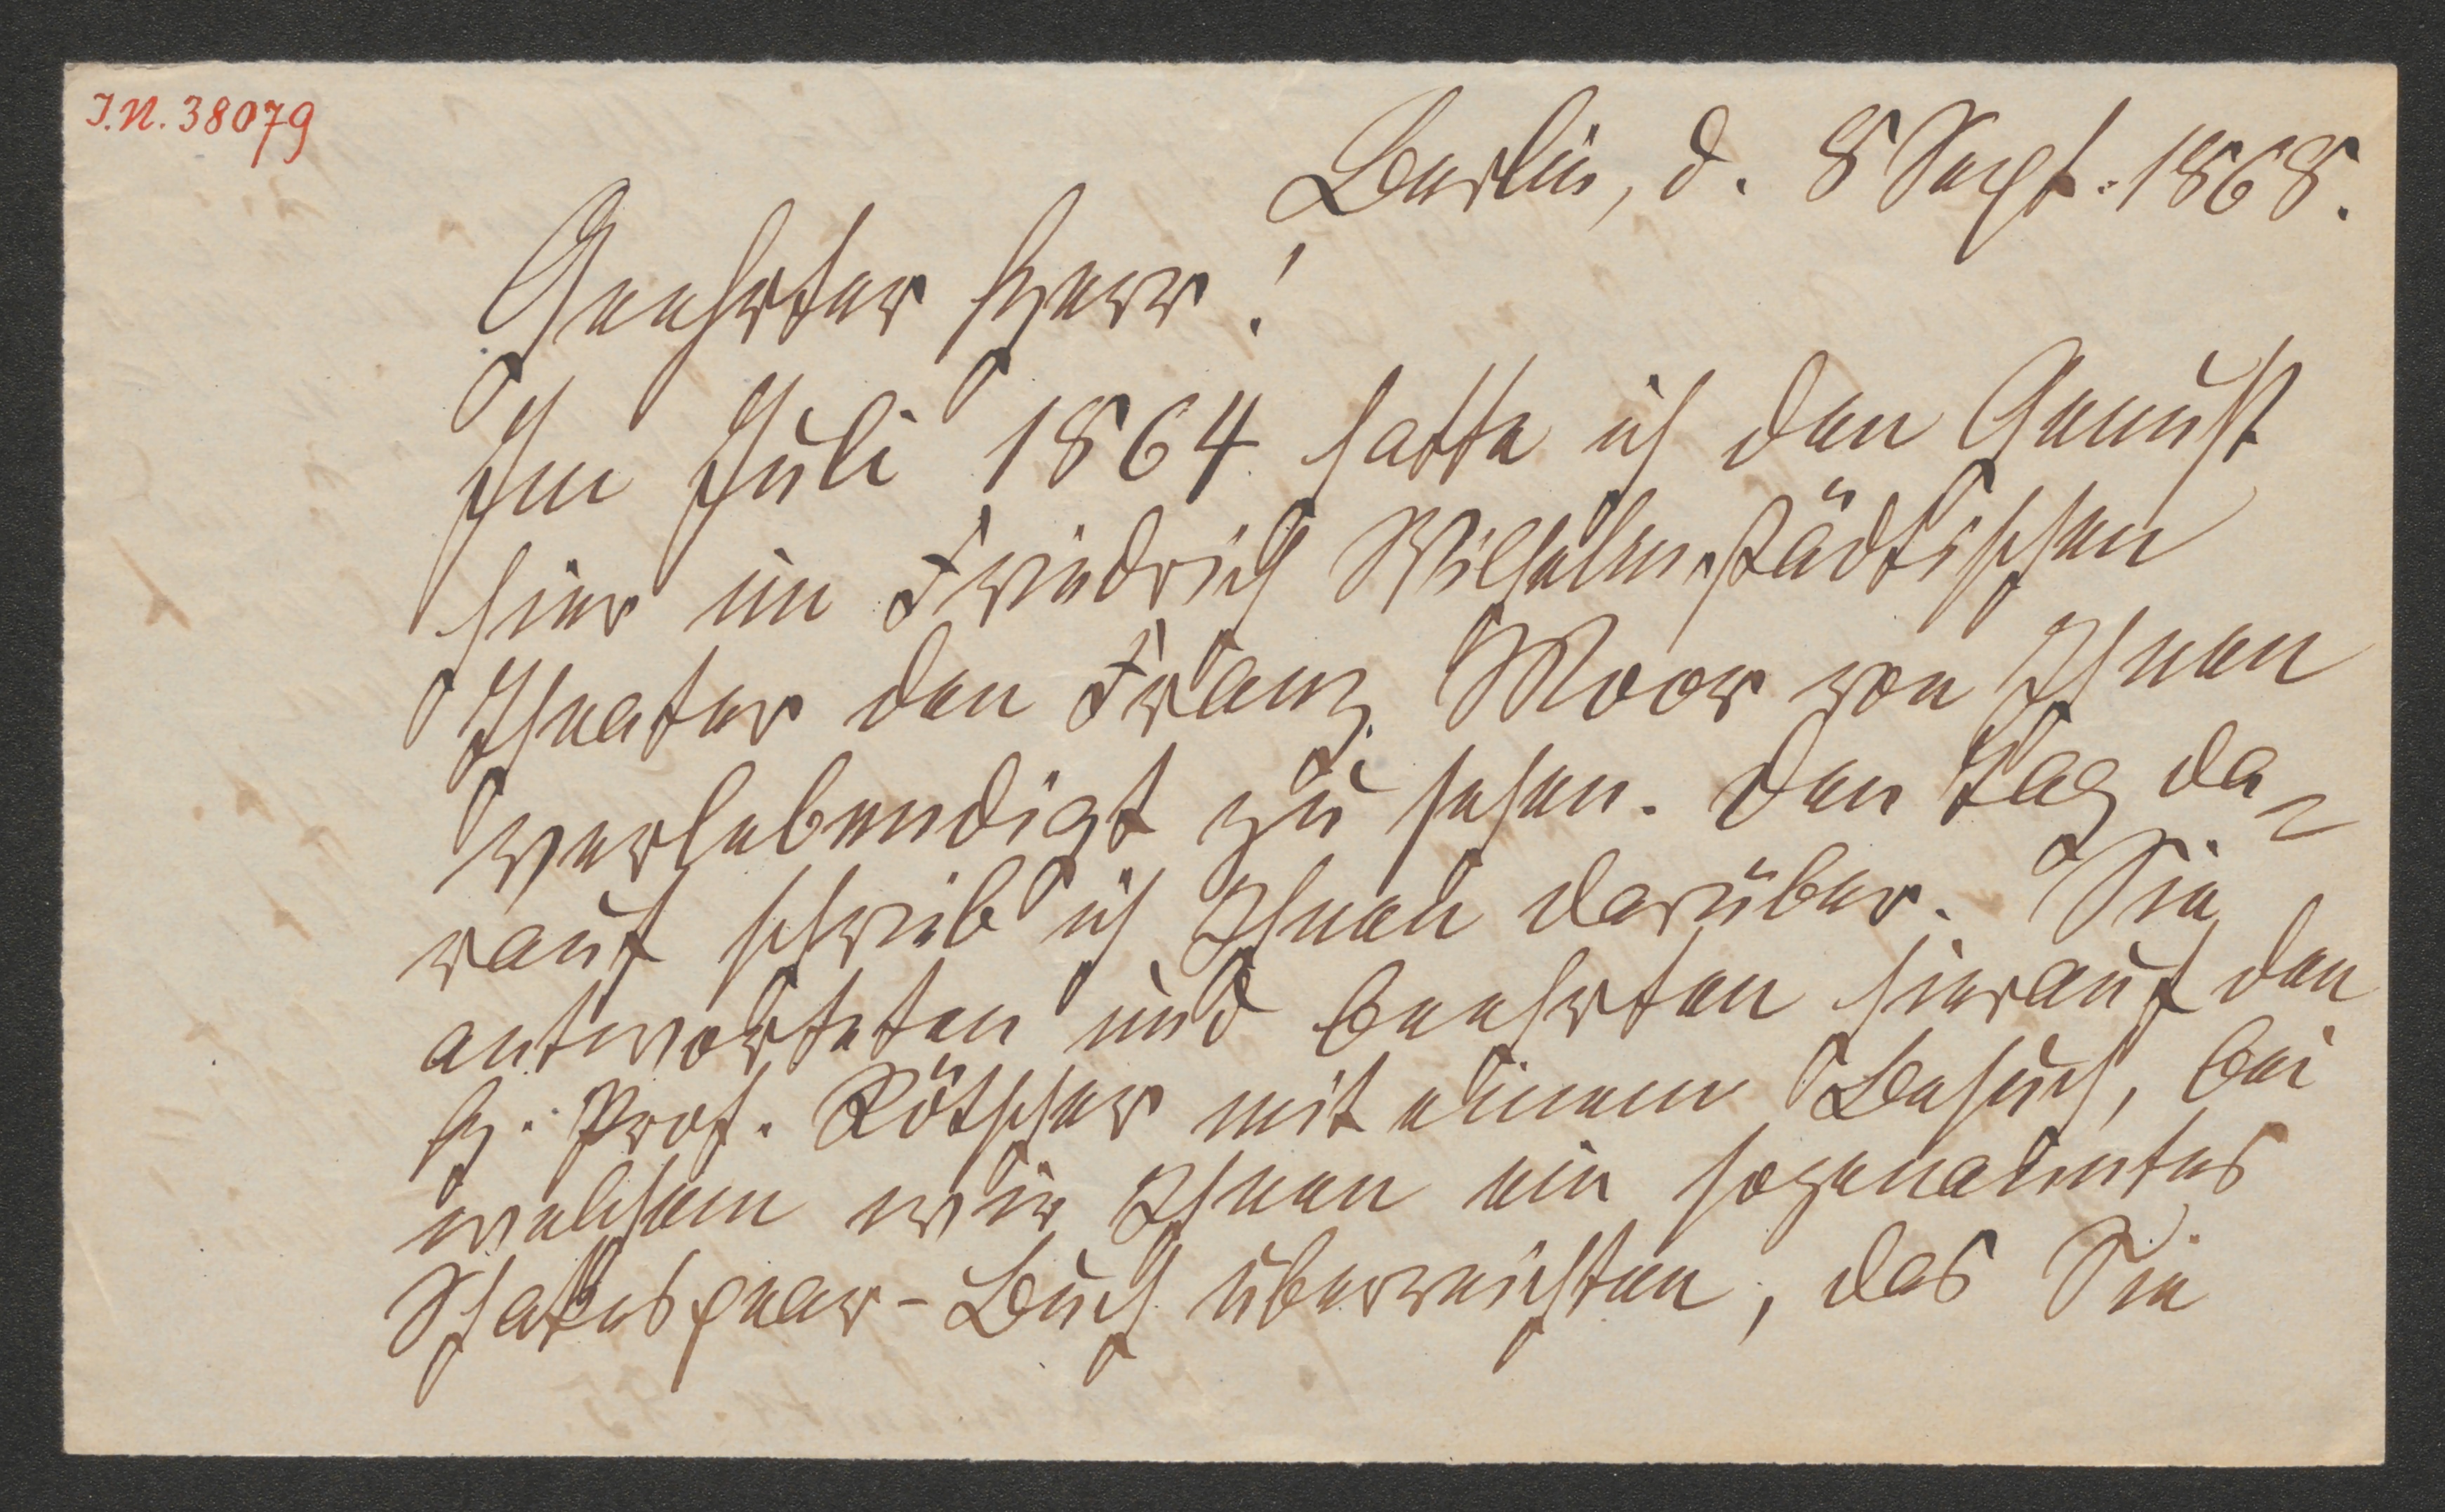 I.N. 38079
Berlin, d. 8 Sept. 1868.
Geehrter Herr!
Im Juli 1864 hatte ich den Genuß
hier im Friedrich Wilhelmstädtischen
Theater den Franz Moor von Ihnen
verlebendigt zu sehen. Den Tag da-
rauf schrieb ich Ihnen darüber. Sie
antworteten und beehrten hierauf den
H. Prof. Rötscher mit einem Besuch, bei
welchem wir Ihnen ein sogenanntes
Shakespear-Buch überreichten, das Sie